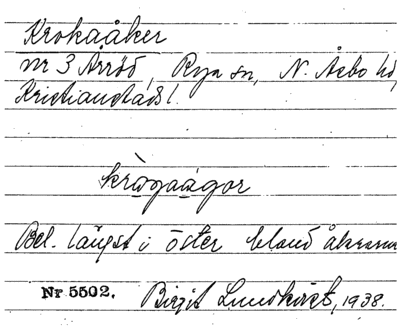 Krokaåker
nr 3 Årröd, Rya sn, N. Åsbo hd,
Kristianstads l.
krògaågor
Bel. längst i öster bland åkrarna
Nr 5502. Birgit Lundkvist, 1938.